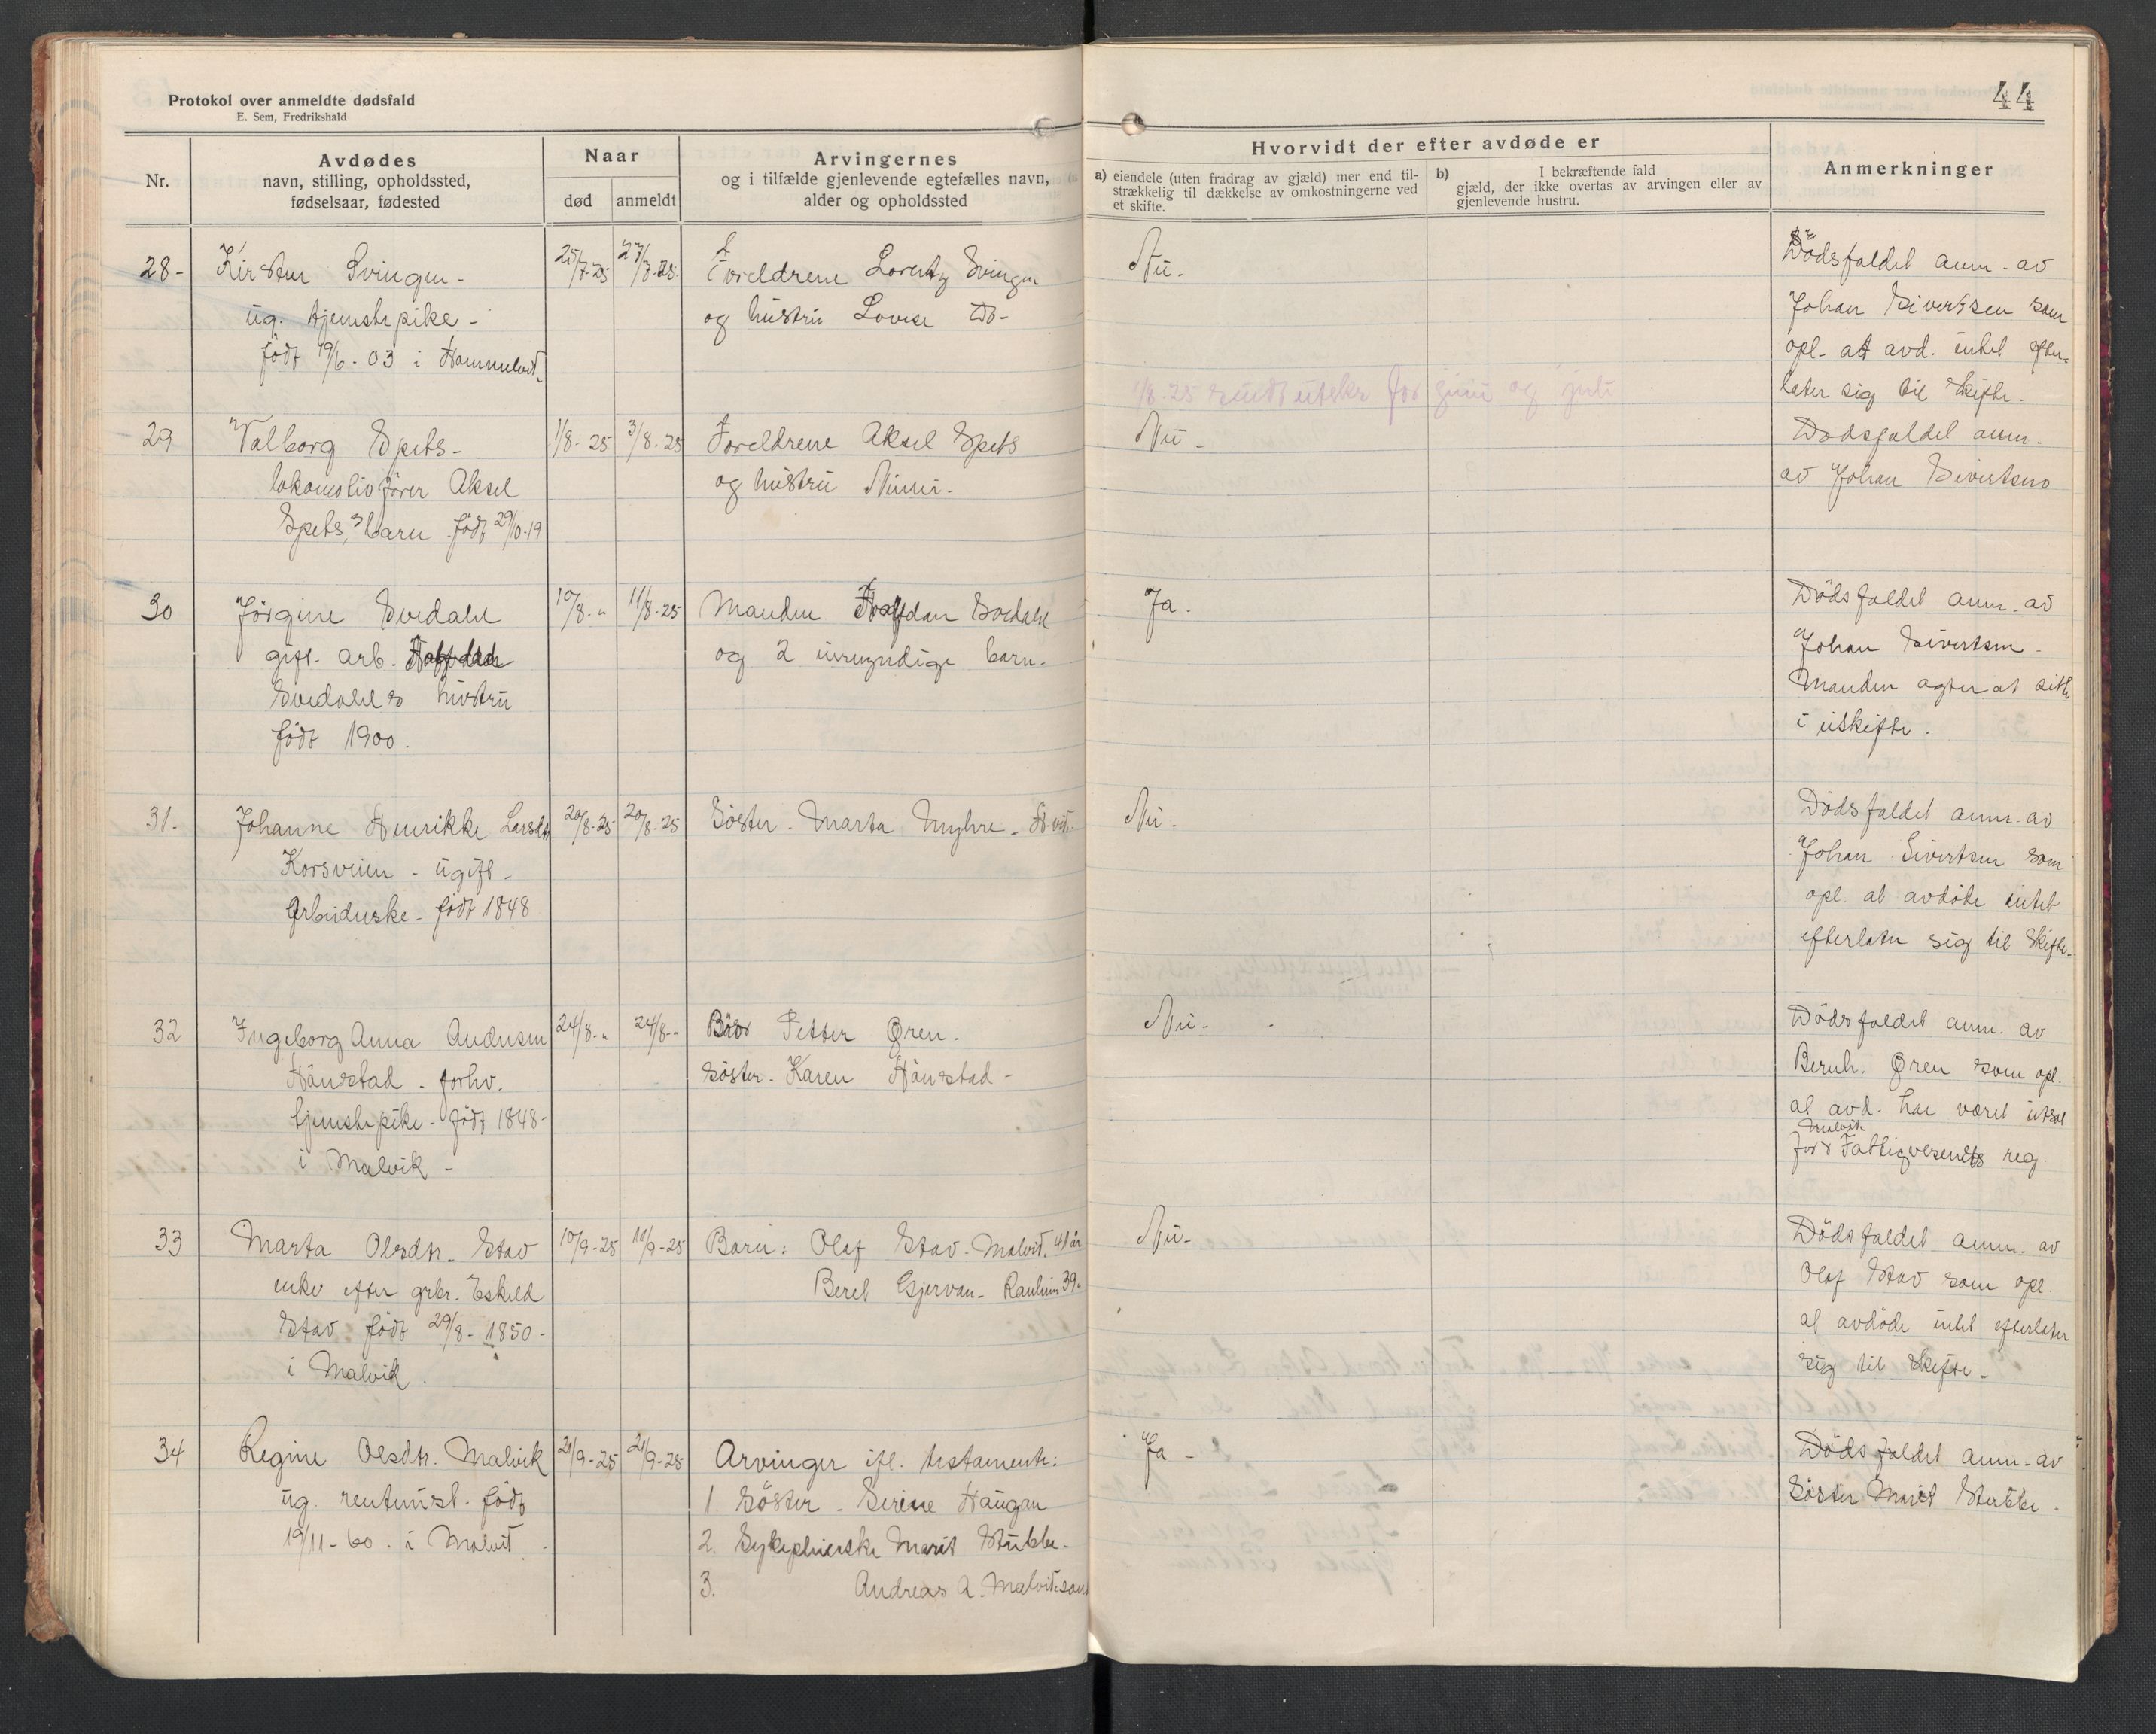 Protokol over anmeldte dødsfald
E. Sem, Fredrikshald
44
Nr.
Avdødes
navn, stilling, opholdssted,
fødselsaar, fødested
Naar
død
anmeldt
Arvingernes
og i tilfælde gjenlevende egtefælles navn,
alder og opholdssted
Hvorvidt der efter avdøde er
a) eiendele (uten fradrag av gjæld) mer end til-
strækkelig til dækkelse av omkostningerne ved
et skifte.
b) I bekræftende fald
gjæld, der ikke overtas av arvingen eller av
gjenlevende hustru.
Anmerkninger
28-
Kirsten Svingen-
ug. tjenestepike-
født 19/6-03 i Hommelvik
25/7-25
27/7-25
Foreldrene Lorentz Svingen
og hustru Lovise Do-
Nei.
Dødsfaldet anm. av
Johan Sivertsen som
opl. at avd. intet efter-
later sig til skifte.
1/8-25 sendt utskr for juni og juli
29
Valborg Spets-
lokomotivfører Aksel
Spets, barn født 29/10-19
1/8-25
3/8-25
Foreldrene Aksel Spets
og hustru
Nei-
Dødsfaldet anm.
av Johan Sivertsen
30
Jørgine Svedahl
gift. arb. Halfdan
Svedahls hustru
født 1900.
10/8-"
11/8-25
Manden Halfdan Svedahl
og 2 umyndige barn.
Ja.
Dødsfaldet anm. av
Johan Sivertsen-
Manden agter at sitte
i uskifte.
31.
Johanne Henrikke Larsdtr
Korsveien - ugift-
Arbeiderske- født 1848
20/8-25
20/8-25
Søster. Marta Myhre- H.vik.
Nei.
Dødsfaldet anm. av
Johan Sivertsen som
opl. at avdøde intet
efterlater sig til skifte.
32
Ingeborg Anna Andersen
Hønstad. forhv.
tjenestepike- født 1848-
i Malvik-
24/8-"
24/8-"
Bror Petter Øren.
Søster. Karen Hønstad-
Nei-
Dødsfaldet anm. av
Bernh. Øren som opl.
at avd. har været utsat
Malvik
for Fattigvesenets reg.
33
Marta Olsdtr. Stav
enke efter grbr. Eskild
Stav født 29/8-1850-
i Malvik.
10/9-25
11/9-25
Barn: Olaf Stav- Malvik. 41 år
Beret Gjervan- Ranheim 39"
Nei-
Dødsfaldet anm. av
Olaf Stav som opl.
at avdøde intet efterlater
sig til skifte-
34
Regine Olsdtr. Malvik
ug. født
19/11-60. i Malvik
21/9-25
21/9-25
Arvinger ifl. testamente:
1. Søster- Serine Haugan
2. Sykepleierske Marit Stubbe-
3. Andreas A. Malvik
Ja-
Dødsfaldet anm. av
Søster Marit Stubbe.